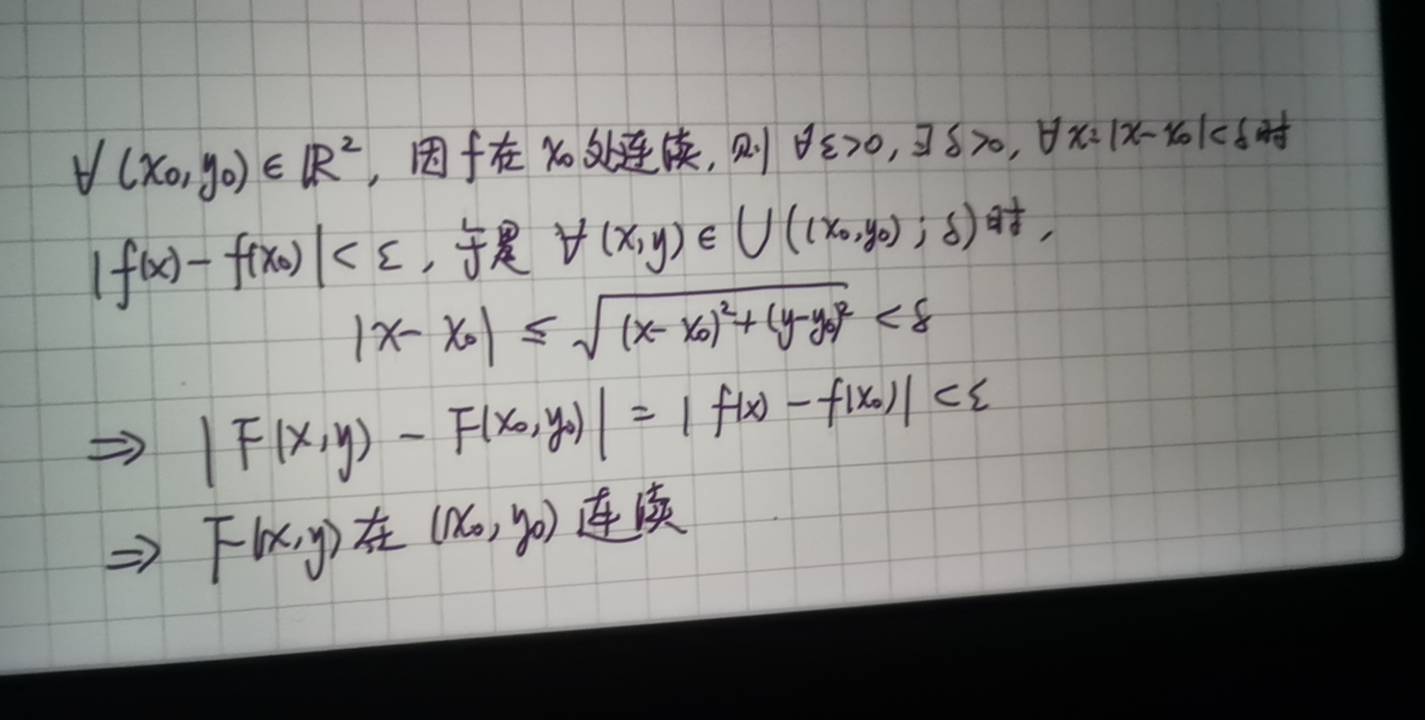 ∀(x₀,y₀)∈ℝ², 因f在x₀处连续, 则 ∀ε>0, ∃δ>0, ∀x:|x-x₀|<δ时
|f(x)-f(x₀)|<ε, 于是 ∀(x,y)∈U((x₀,y₀);δ)时,
|x-x₀| ≤ √((x-x₀)²+(y-y₀)²) <δ
⇒ |F(x,y) - F(x₀,y₀)| = |f(x)-f(x₀)| <ε
⇒ F(x,y)在(x₀,y₀)连续